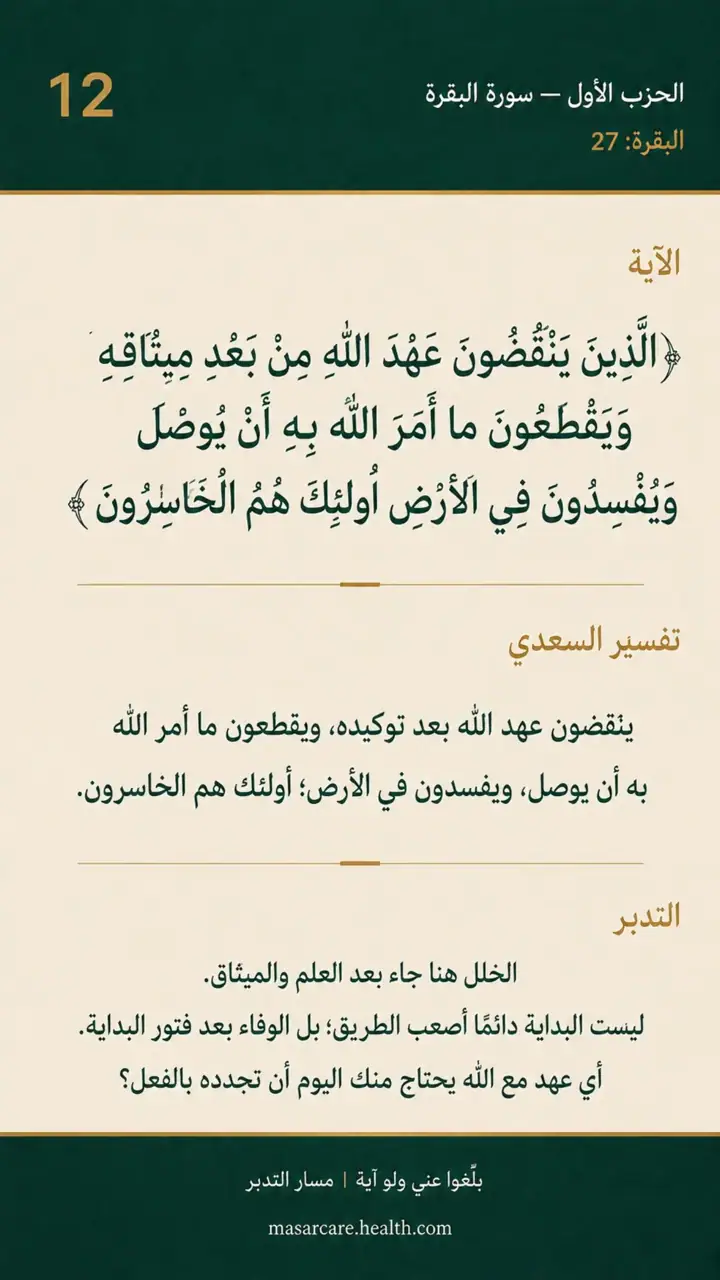 الحزب الأول — سورة البقرة
12
البقرة: 27
الآية
﴿الَّذِينَ يَنْقُضُونَ عَهْدَ اللهِ مِنْ بَعْدِ مِيثَاقِهِ
وَيَقْطَعُونَ ما أَمَرَ اللهُ بِهِ أَنْ يُوصْلَ
وَيُفْسِدُونَ فِي الأرْضِ أُولئِكَ هُمُ الْخَاسِرُونَ﴾
تفسير السعدي
ينقضون عهد الله بعد توكيده، ويقطعون ما أمر الله
به أن يوصل، ويفسدون في الأرض؛ أولئك هم الخاسرون.
التدبر
الخلل هنا جاء بعد العلم والميثاق.
ليست البداية دائمًا أصعب الطريق؛ بل الوفاء بعد فتور البداية.
أي عهد مع الله يحتاج منك اليوم أن تجدده بالفعل؟
بلِّغوا عني ولو آية | مسار التدبر
masarcare.health.com